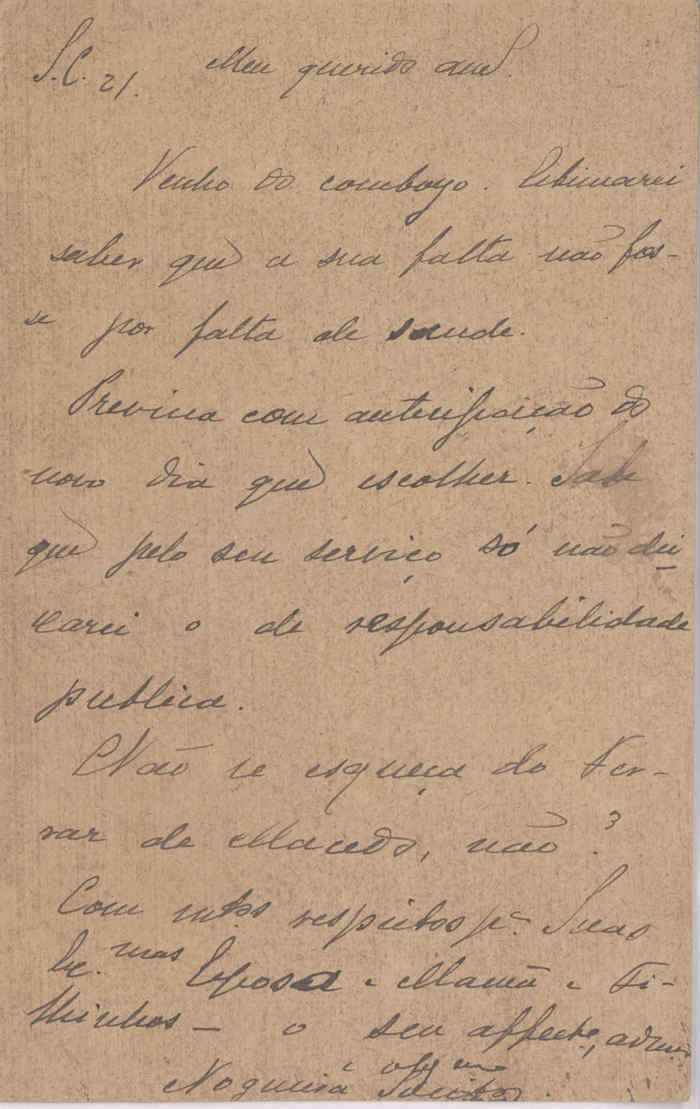 S.C. 21. Meu querido am.º
Venho do comboyo. Estimarei
saber que a sua falta não fos-
se por falta de saude.
Previna com antecipação do
novo dia que escolher. Sabe
que pelo seu serviço só não dei
xarei o de responsabilidade
publica.
Não se esqueça do Fer-
rar de Macedo, não?
Com mtos respeitos pª Suas
Ex.mas Esposa e Mamã e Fi-
lhinhos — o seu affect.º, adm.or
e obg.mo
Nogueira